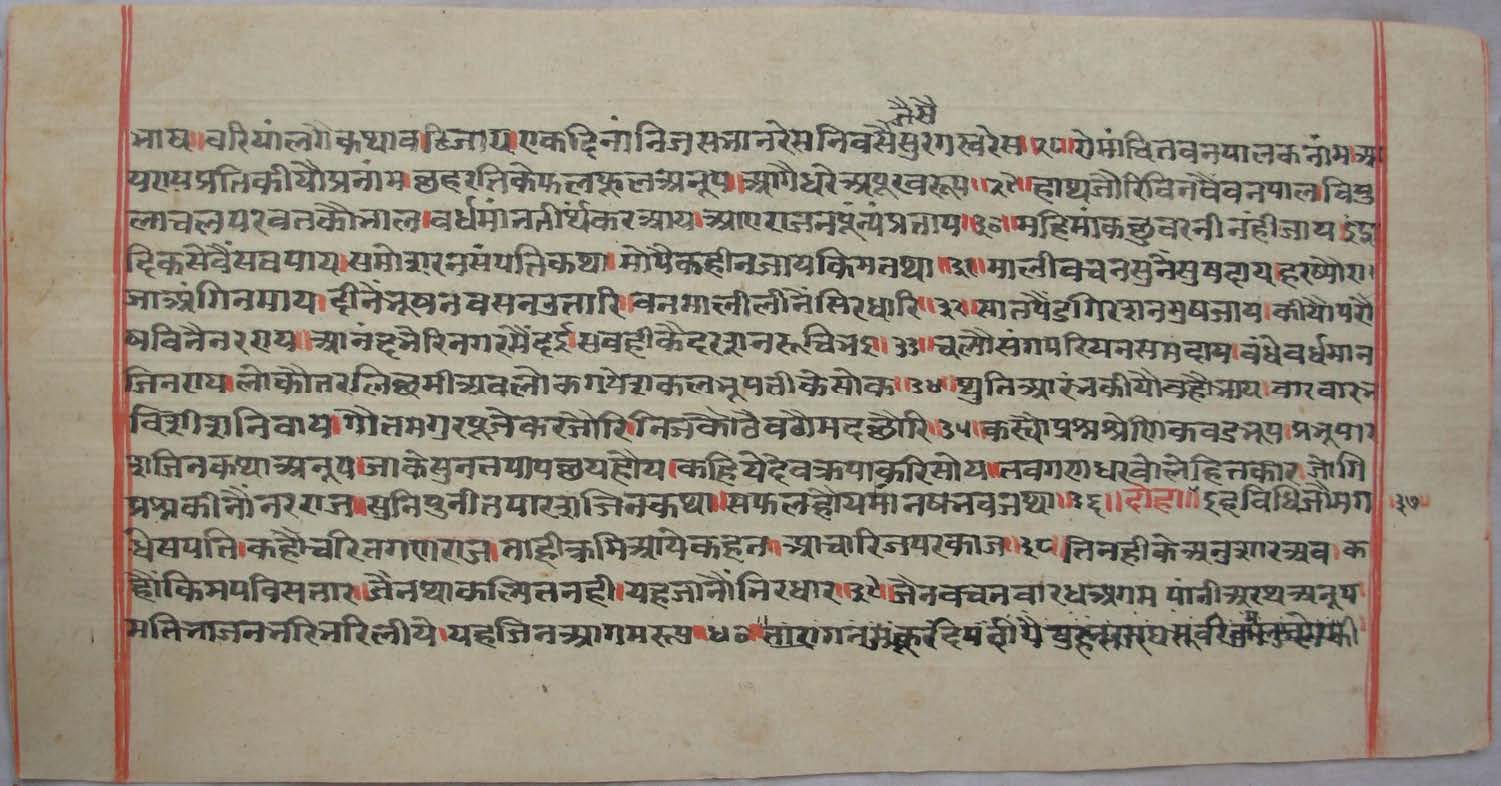 जैसै
भाष॥वरियां लगै कथा वढि जाय॥एक दिनां निज सभा नरेस निवसै सुरग सुरेस॥२८॥रोमांचित वनपालक नांम॥आ
य राय प्रति कीयौ प्रनांम॥छह रति के फल फूल अनूप॥आगै धरे अपूरव रूप॥२९॥हाथ जौरि विनवै वनपाल विपु
लाचल परवत कौ भाल॥वर्धमांन तीर्थंकर आय॥आए राजन पूंन्य प्रताय॥३०॥महिमां कछु वरनी नंही जाय इंद्रा
दिक सेवैं सव पाय॥समोशरन संपति कथा॥मोपै कही न जाय किम तथा॥३१॥माली वचन सुनै सुषदाय॥हरष्यौ रा
जा अंगि न माय॥दीनै भूषन वसन उतारि॥वनमाली लीनै सिर धारि॥३२॥सात पैंड गिर शनमुष जाय॥कीयौ परौ
ष विनै नरराय॥आनंद भैरि नगर मैं दई॥सवही कै दरशन रूचि भई॥३३॥चल्यौ संग परियन समदाय॥वंधे वर्धमान
जिनराय॥लोकौत्तर लिछमी अवलोक गये शकल भूपती के सोक॥३४॥थुति आरंभ कीयौ वहौ भाय॥वार वार भ
वि शीश निवाय॥गौतम गुर पूजे कर जौरि॥निज कोठै वैठौ मद छौरि॥३५॥कस्यौ प्रश्न श्रेणिक वड भूप॥प्रभू पार
शजिन कथा अनूप॥जा के सुनत पाप छय हौय॥कहिये देव क्रपा करि सोय॥तव गणधर वोले हितकार॥जौगि
प्रश्न कीनौं नरराज॥सुनि पुनीत पारशजिन कथा॥सफल होय मांनष भव जथा॥३६॥दोहा॥इह विधि जौ मग ॥३७॥
धेसपति॥कहौ चरित गणराज॥ताही क्रमि आये कहत॥आचारिज परकाज॥३८॥तिनही के अनुशार अव॥क
हौं किमपि विसतार॥जैनथा कल्पित नही॥यह जानौं निरधार॥३९॥जैन वचन वारध अगम पांनी अरथ अनूप
मति भाजन भरि भरि लीये॥यह जिन आगम रूप॥४०॥